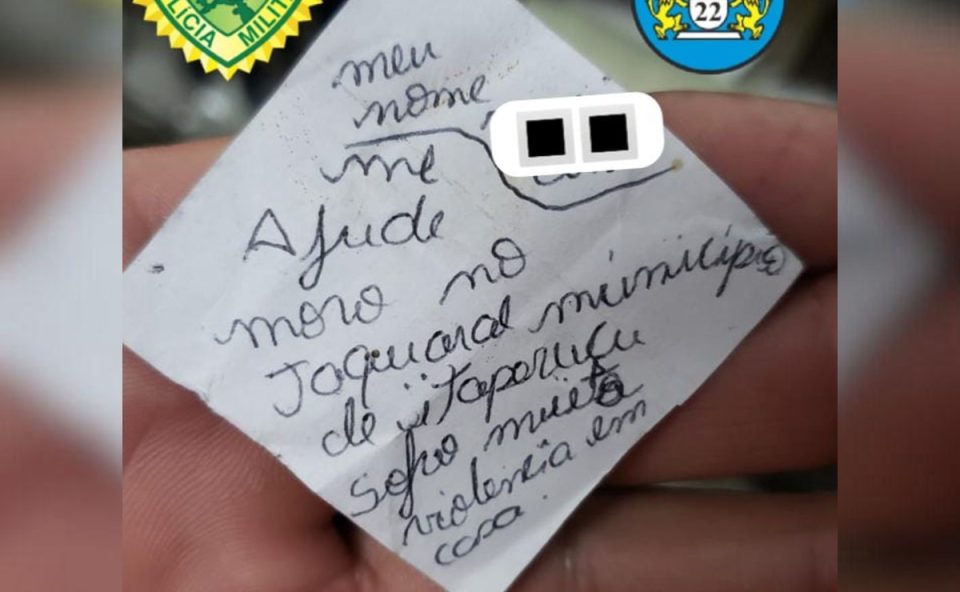 LÍCIA MILIT
22
meu
nome
me
Ajude
moro no
Taquaral município
de itaperuçu
Sofro muita
violencia em
casa.